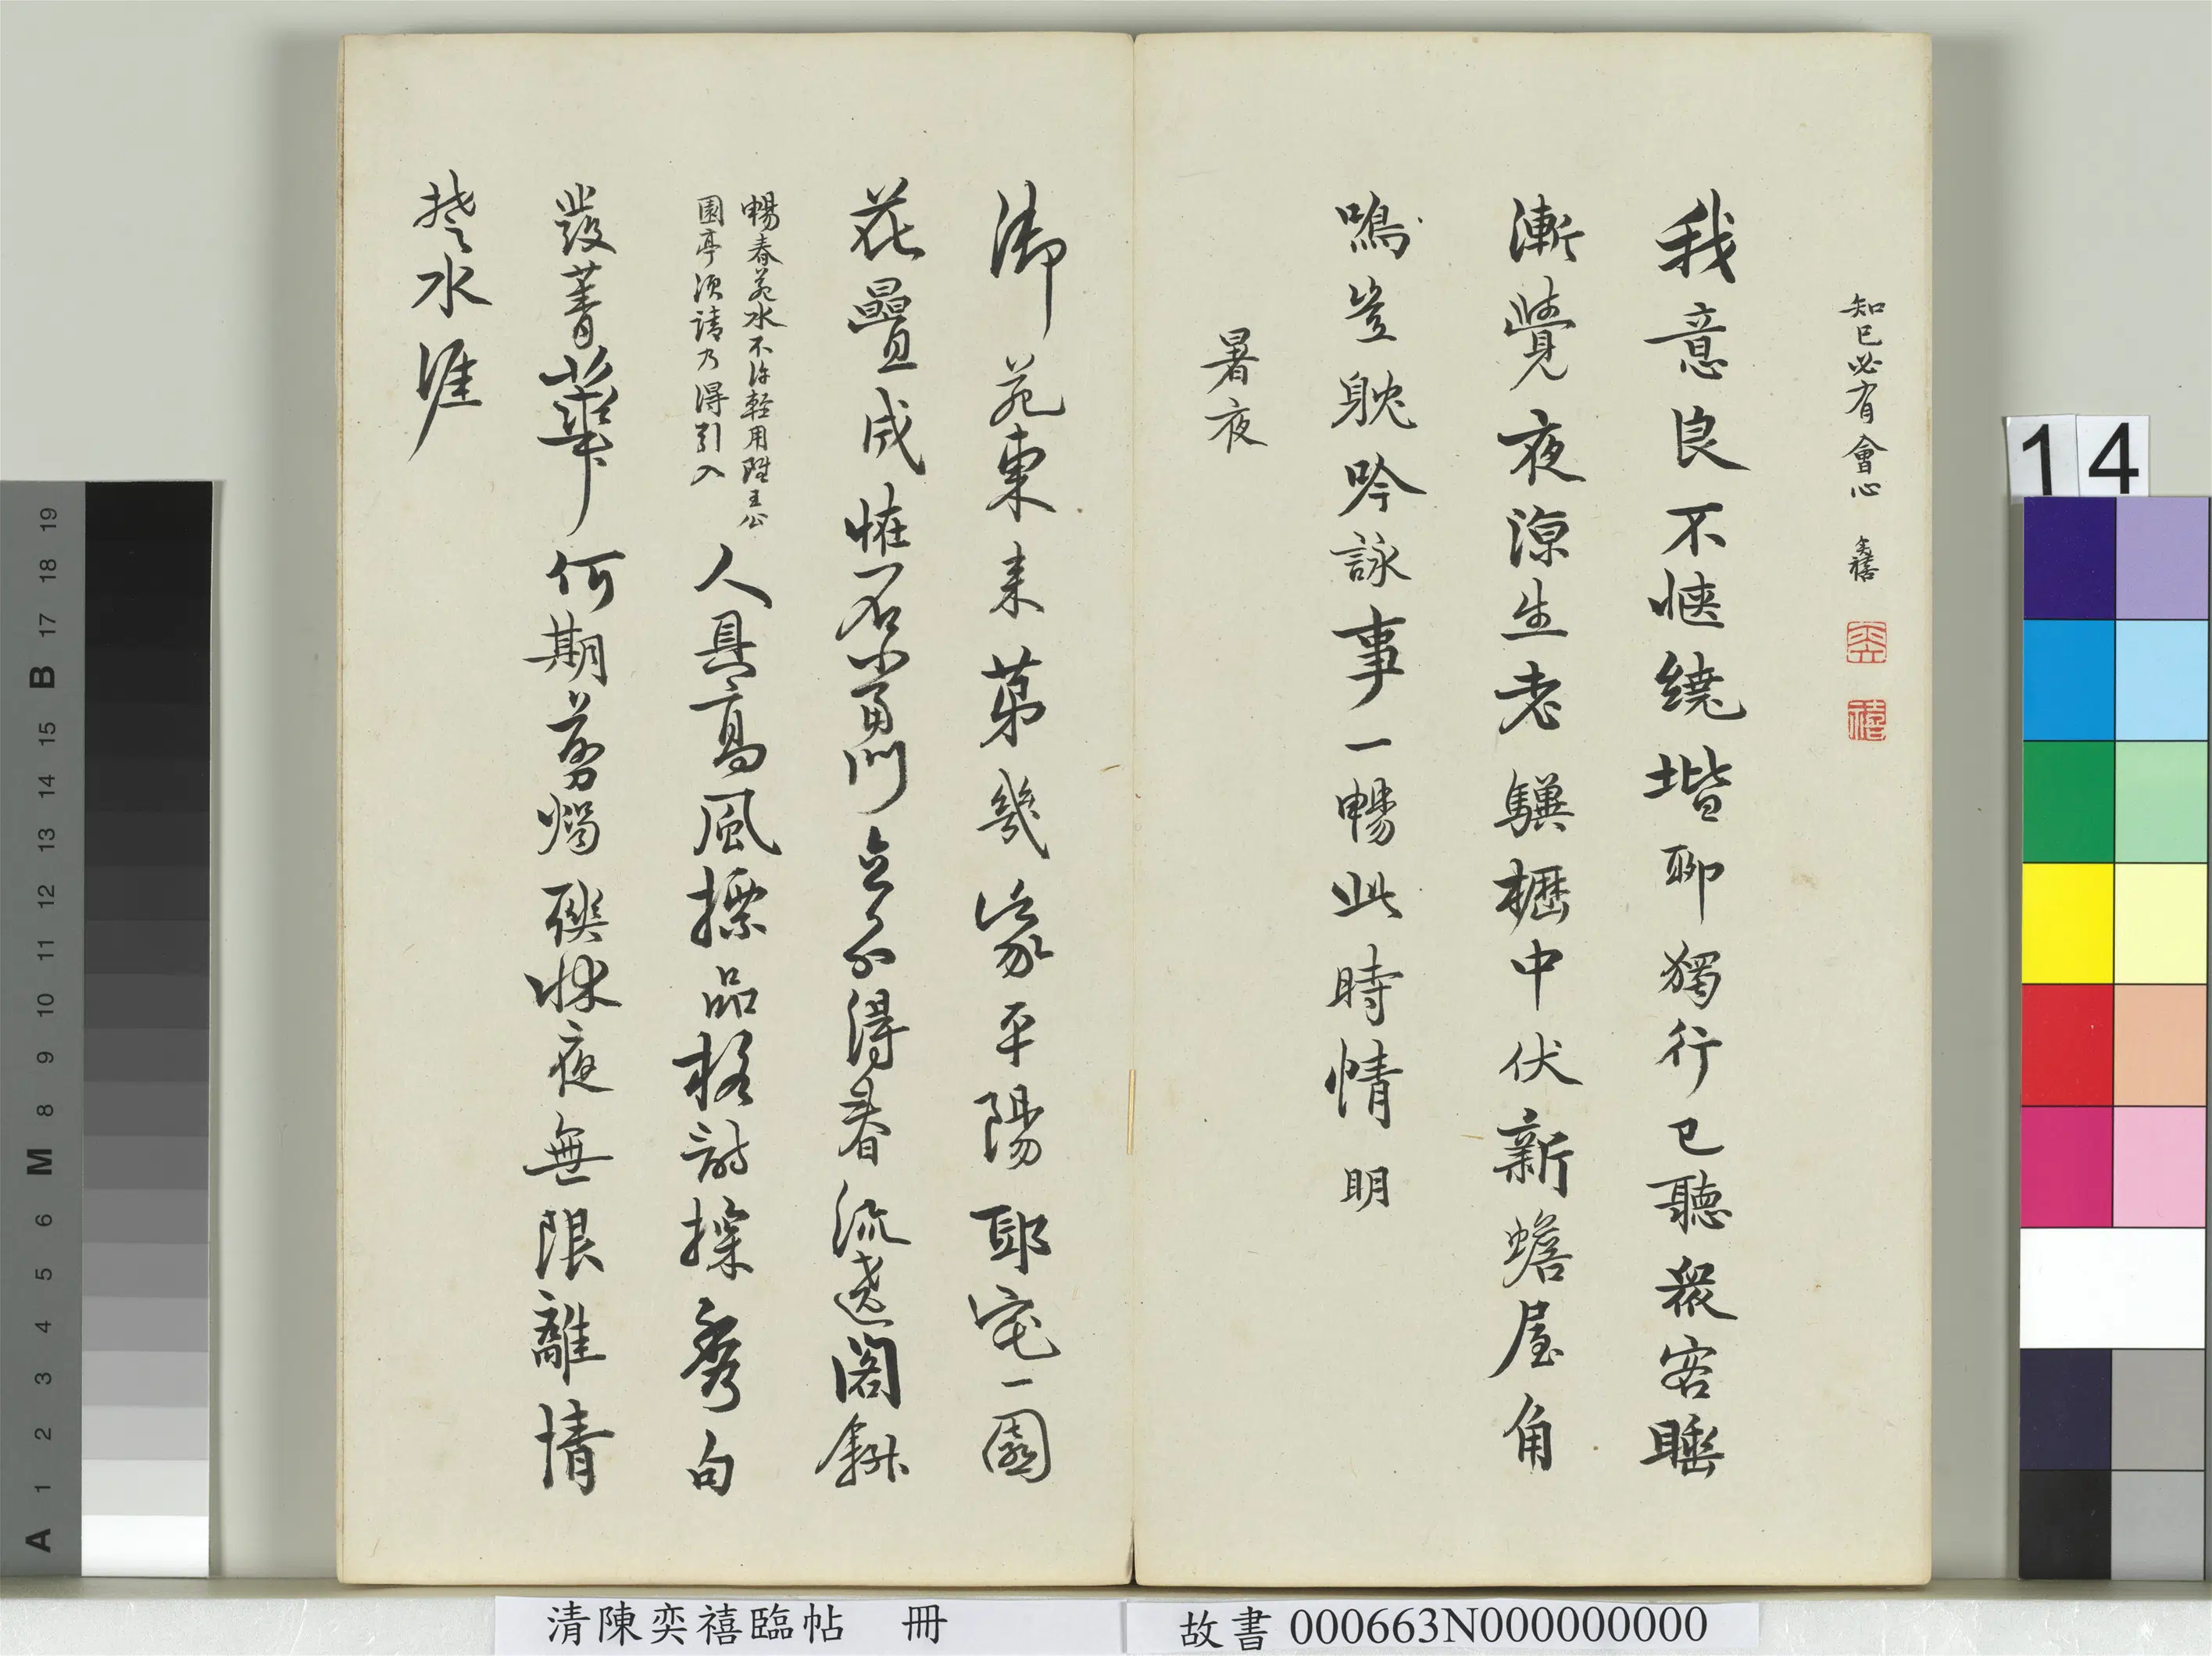 知己必有會心 奕禧
奕
禧
我意良不愜繞堦聊獨行已聽衆客睡
漸覺夜涼生老驥櫪中伏新蟾屋角
鳴豈躭吟詠事一暢此時情明
暑夜
御苑東來第幾家平陽邸宅一園
花疊成恠石當門立分得春流遶閣斜
暢春苑水不許輕用雖王公
園亭須請乃得引入
人具高風標品格詩探秀句
發菁華何期剪燭聯牀夜無限離情
楚水涯
14
清陳奕禧臨帖 冊
故書 000663N000000000
A 1 2 3 4 5 6 M 8 9 10 11 12 13 14 15 B 17 18 19